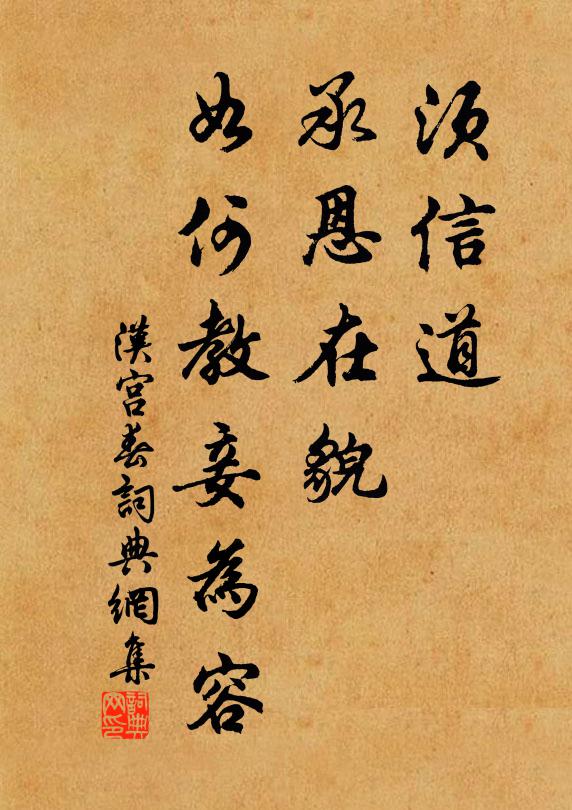 須信道
承恩在貌
如何教妾為容
漢宮春詞典網集
詞典網印